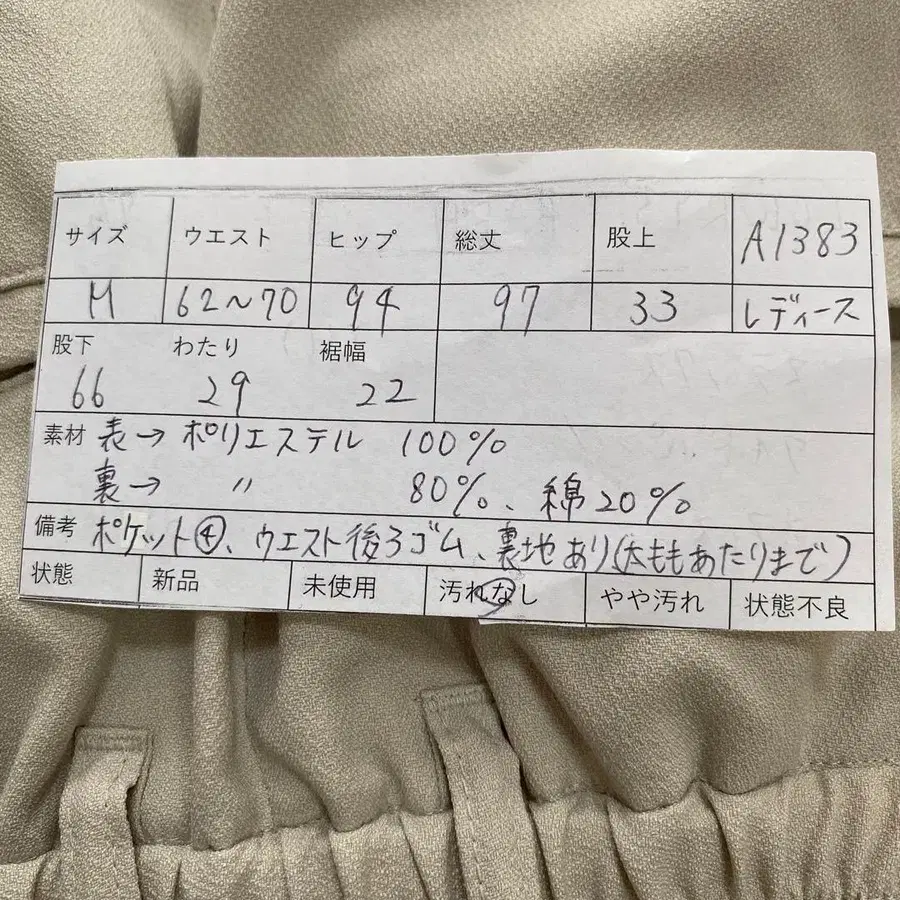 サイズ ウエスト ヒップ 総丈 股上 A1383
M 62〜70 94 97 33 レディース
股下 わたり 裾幅
66 29 22
素材 表→ポリエステル 100%
裏→ 〃 80%、綿20%
備考 ポケット④、ウエスト後ろゴム、裏地あり(太ももあたりまで)
状態 新品 未使用 汚れなし やや汚れ 状態不良